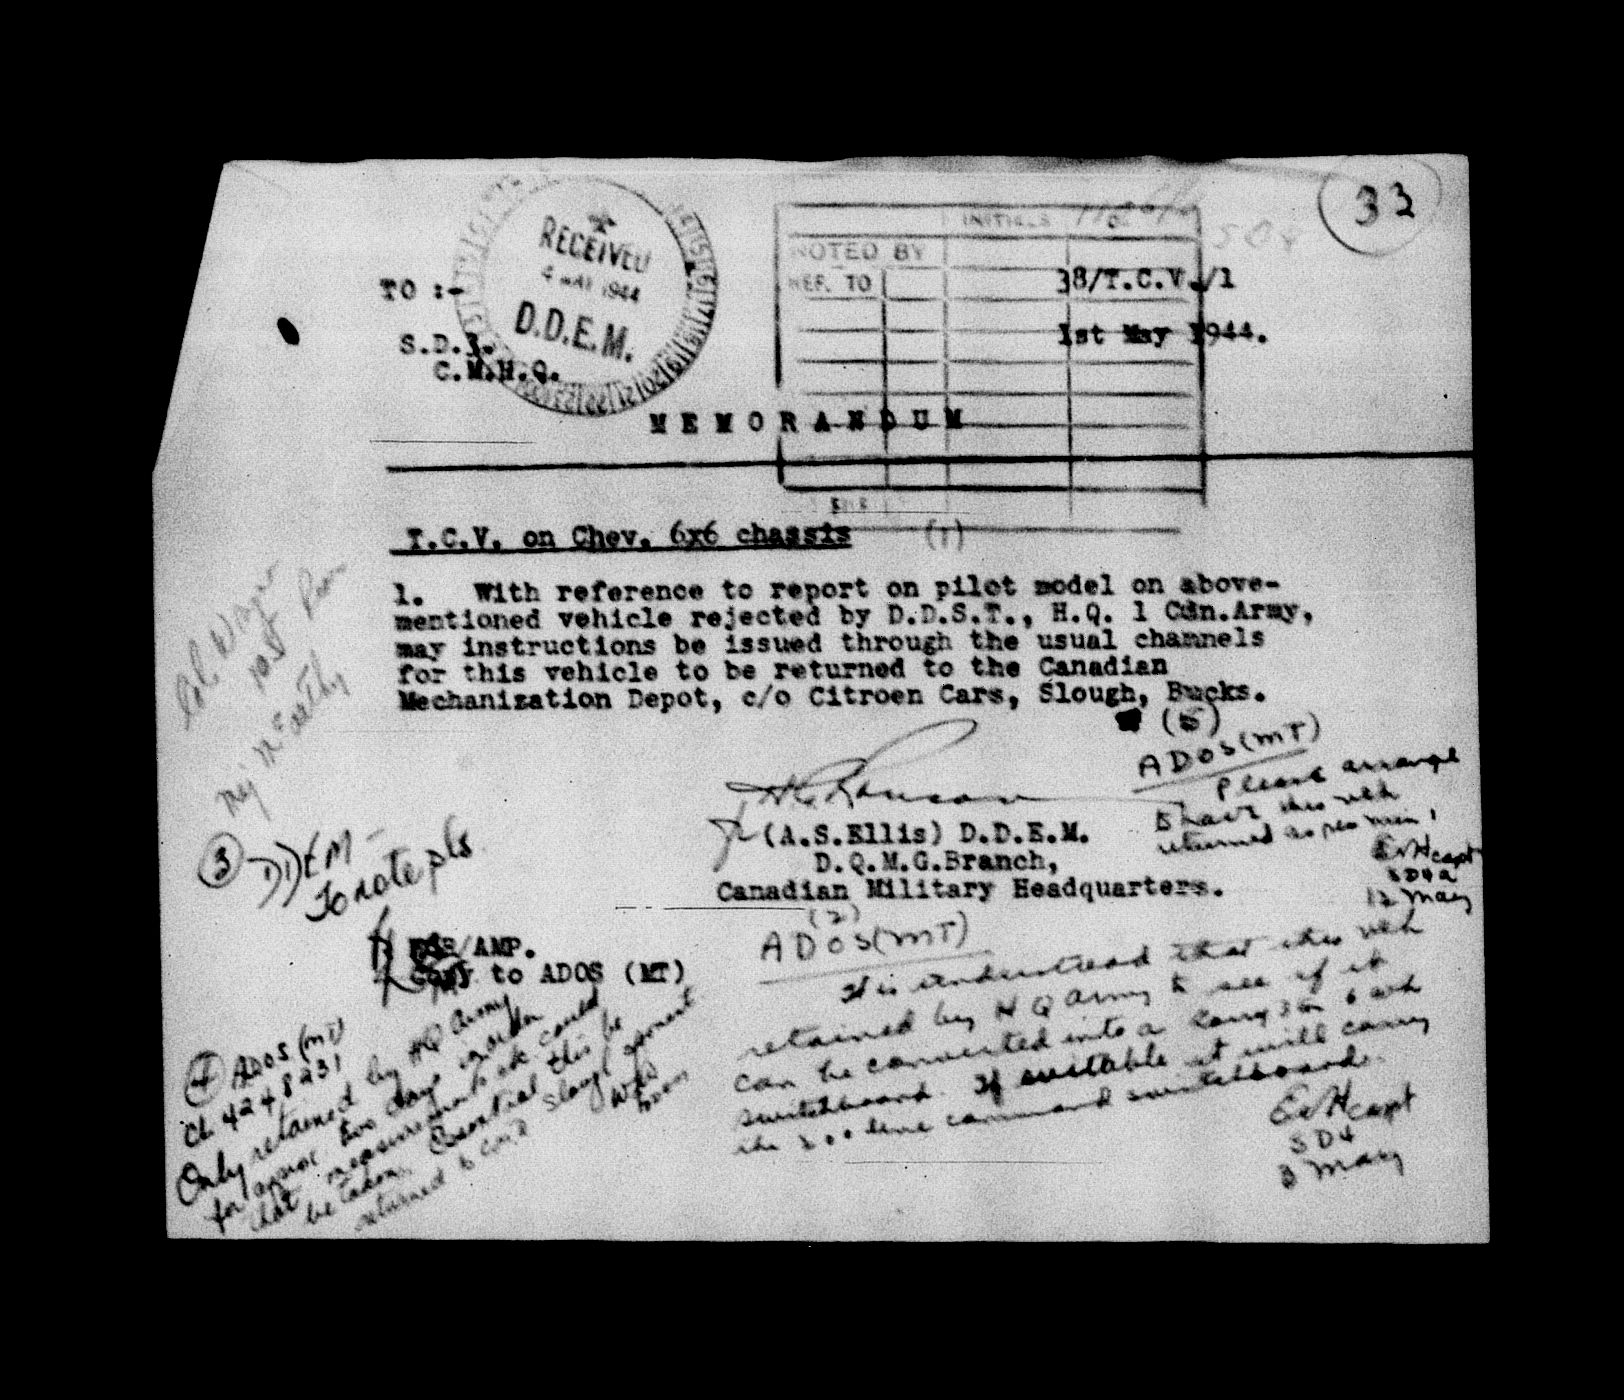 33
RECEIVED
4 MAY 1944
D.D.E.M.
INITIALS
NOTED BY
REF. TO
TO :-
38/T.C.V./1
1st May 1944.
S.D.
C.M.H.Q.
MEMORANDUM
T.C.V. on Chev. 6x6 chassis (1)
1. With reference to report on pilot model on above-
mentioned vehicle rejected by D.D.S.T., H.Q. 1 Cdn.Army,
may instructions be issued through the usual channels
for this vehicle to be returned to the Canadian
Mechanization Depot, c/o Citroen Cars, Slough, Bucks.
(A.S.Ellis) D.D.E.M.
D.Q.M.G.Branch,
Canadian Military Headquarters.
/AMP.
Copy to ADOS (MT)
(2)
ADOS (MT)
It is understood that this veh
retained by H Q Army to see if it
can be converted into a
switchboard. If suitable it will carry
the 200 line command switchboard.
capt
SD4
3 May
(3) DDEM -
To note pls
(4) ADOS (MT)
CL 4248231
Only retained by HQ Army
for approx two days in order
that measurements etc could
be taken. Essential this be
returned to Slough
(5)
ADOS (MT)
Please arrange
to have this veh
returned as per min 1
capt
SD4a
12 May